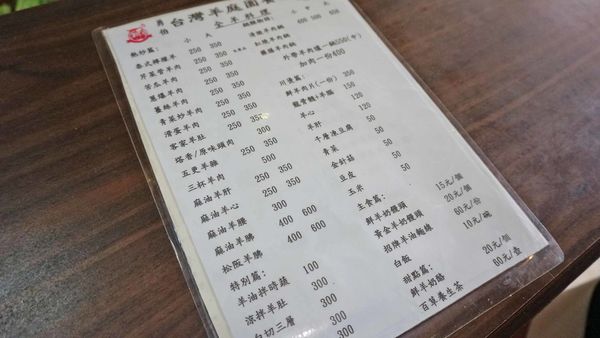 勇伯 台灣羊庭園餐
全羊料理
熱炒篇: 小 大
泰式檸檬羊 250 350
芹菜管羊肉 250 350
苦瓜羊肉 250 350
蔥爆羊肉 250 350
薑絲羊肉 250 350
青菜炒羊肉 250 350
滑蛋羊肉 250 350
客家羊肚 250 350
塔香/原味頭肉 300
五更羊雜 250 350
三杯羊肉 500
麻油羊肝 250 350
麻油羊心
麻油羊腰 400 600
麻油羊腩 400 600
松阪羊腩
特別篇:
羊油拌時蔬 100
涼拌羊肚 300
白切三層 300
300
清燉羊肉鍋 400 600
紅燒羊肉鍋
藥膳羊肉鍋
外帶羊肉爐一鍋550(中)
加肉一份400
川燙篇:
鮮羊肉片(一份) 350
龍骨髓+羊腦 150
羊心 120
羊肝 120
千層凍豆腐 50
青菜 50
金針菇 50
豆皮 50
玉米 50
主食篇:
鮮羊奶饅頭 15元/個
黃金羊奶饅頭 20元/個
招牌羊油麵線 60元/份
白飯 10元/碗
甜點篇:
鮮羊奶酪 20元/個
百草養生茶 60元/壺